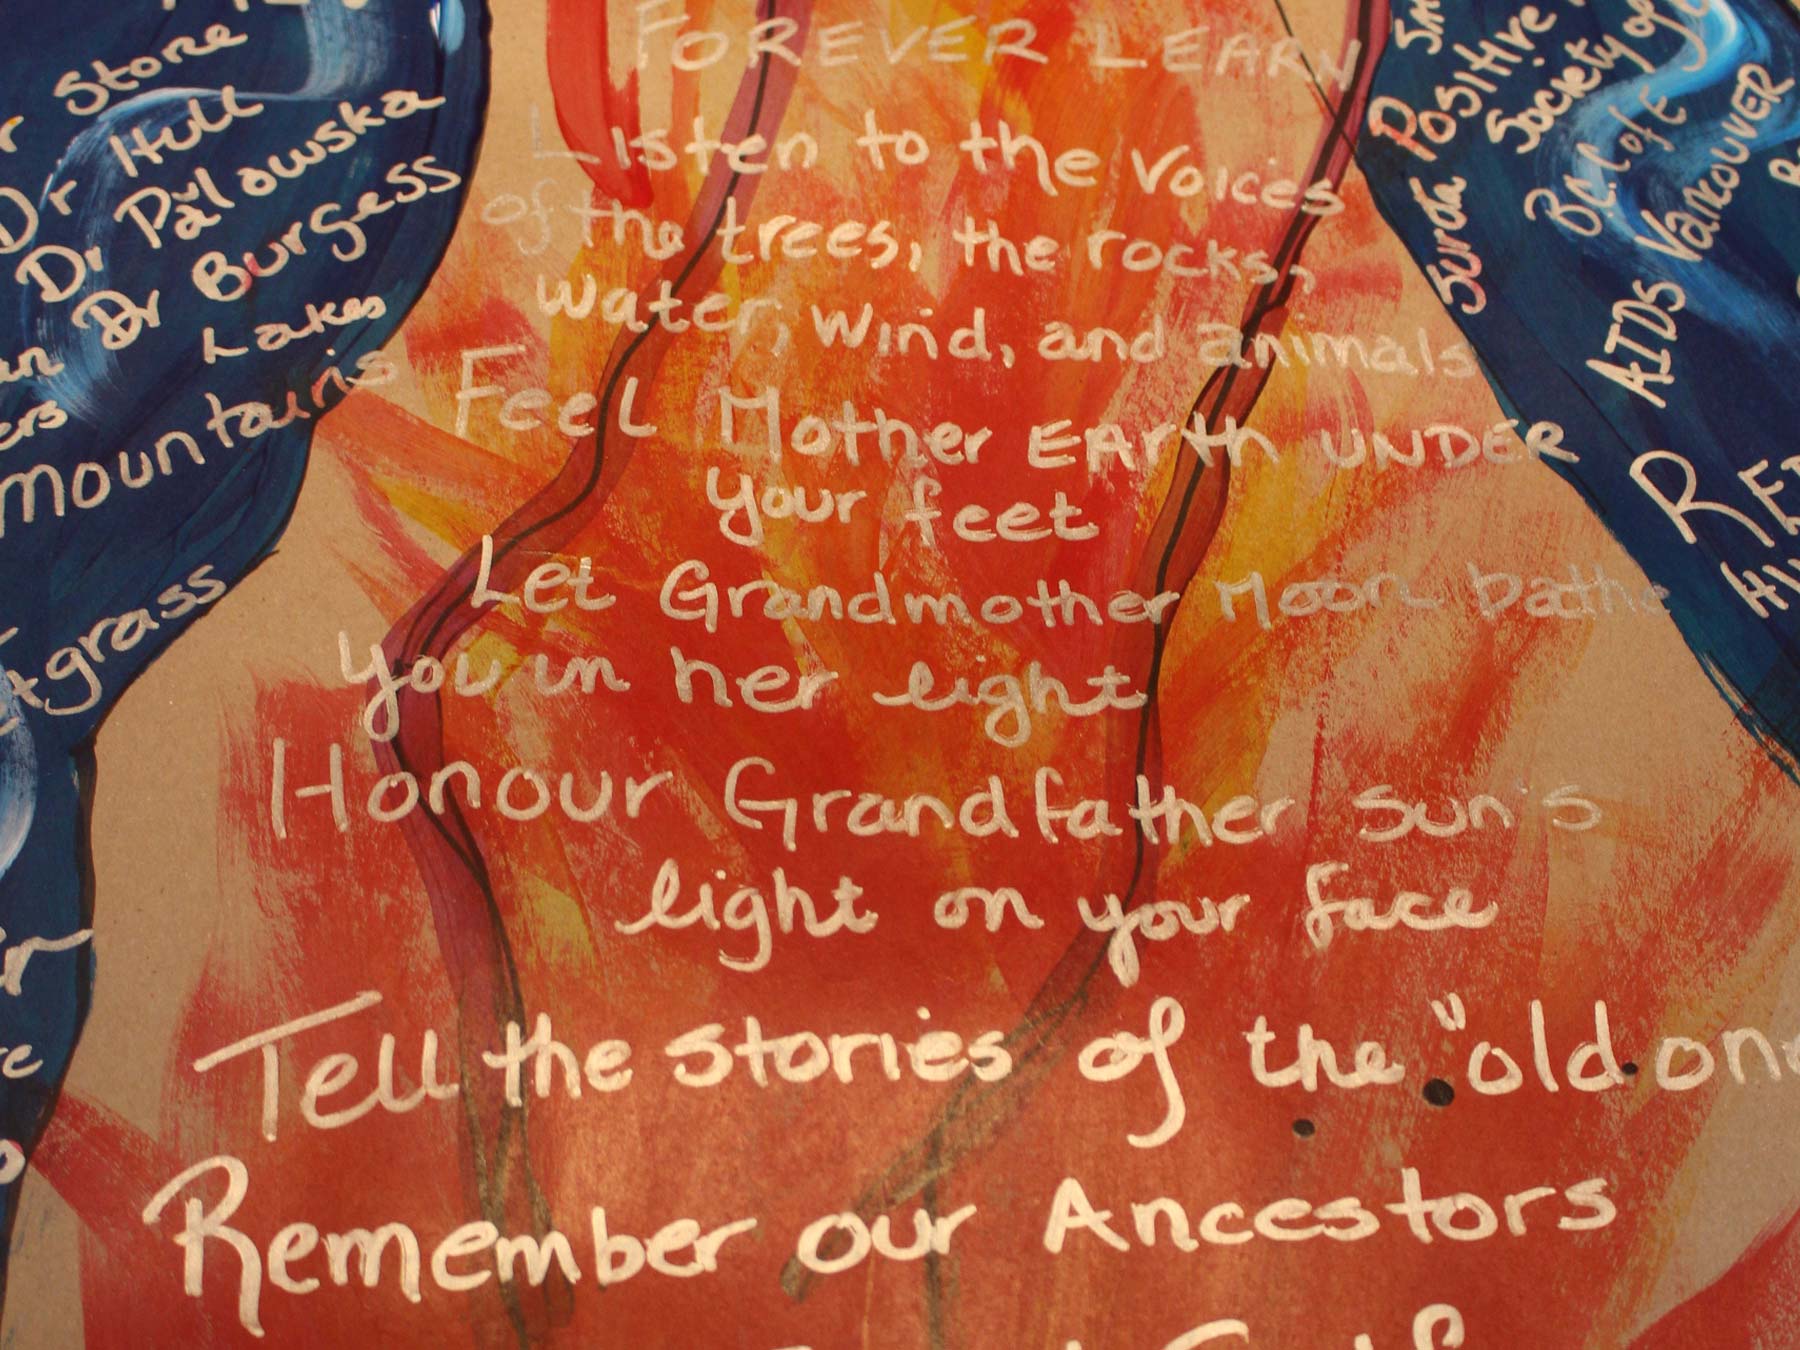 Store
Dr Hull
Dr Palowska
Dr Burgess
Lakes
mountains
FOREVER LEARN
Listen to the voices
of the trees, the rocks,
water, wind, and animals
Feel Mother EArth UNDER
your feet
Let Grandmother Moon bathe
you in her light
Honour Grandfather sun's
light on your face
Tell the stories of the "old one
Remember our Ancestors
Positive
Society of
B.C. C of E
AIDS VANCOUVER